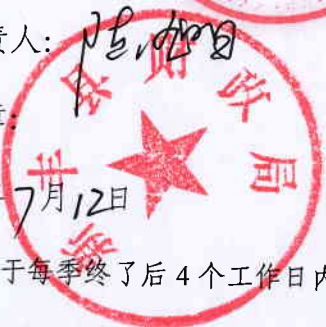 责人：
章：
新丰县财政局
7月12日
于每季终了后 4 个工作日内